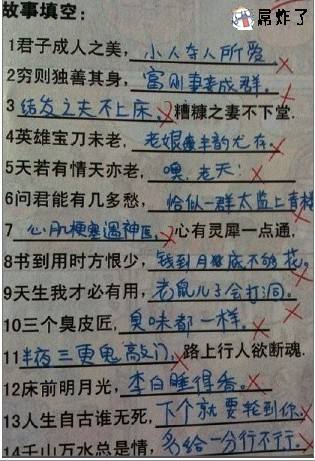 屌炸了
故事填空:
1君子成人之美,小人夺人所爱
2穷则独善其身,富则妻妾成群.
3结发之夫不上床,糟糠之妻不下堂.
4英雄宝刀未老,老娘风韵尤存.
5天若有情天亦老,噢,老天!
6问君能有几多愁,恰似一群太监上青楼
7心肌梗塞遇神医,心有灵犀一点通.
8书到用时方恨少,钱到月底不够花。
9天生我才必有用,老鼠儿子会打洞。
10三个臭皮匠,臭味都一样。
11半夜三更鬼敲门,路上行人欲断魂.
12床前明月光,李白睡得香。
13人生自古谁无死,下个就要轮到你.
14千山万水总是情,多给一分行不行.